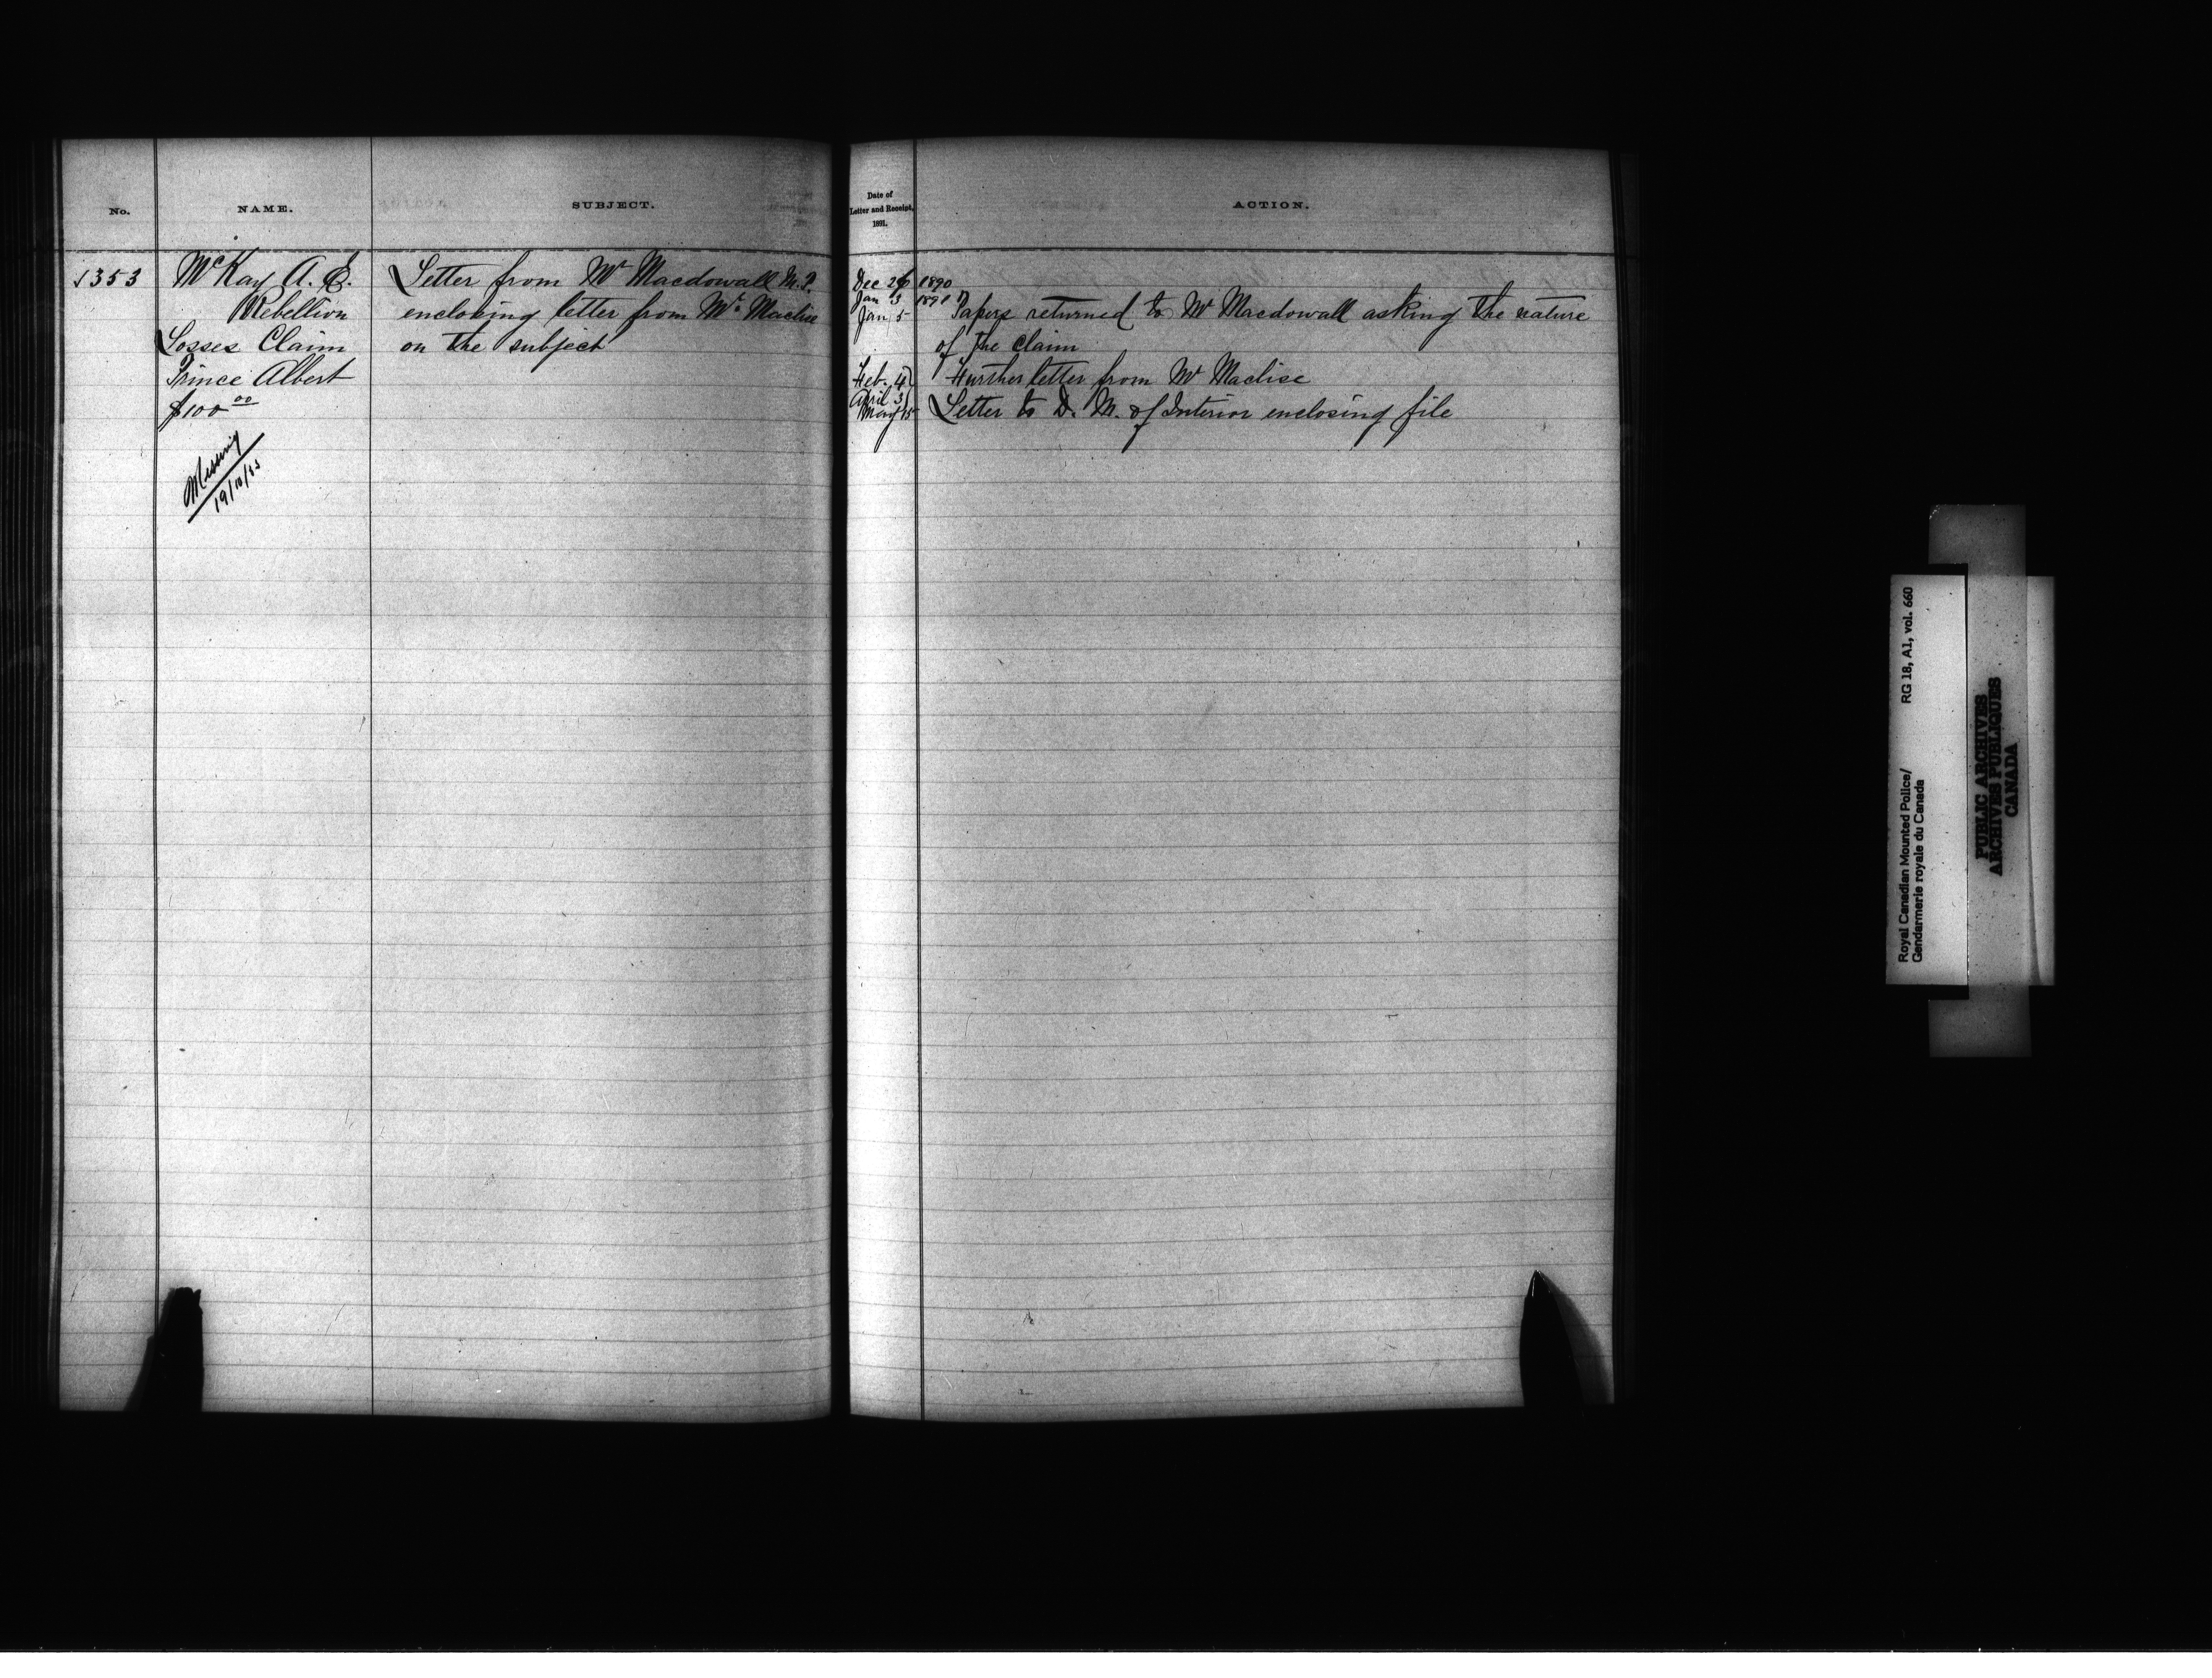 No.
NAME.
SUBJECT.
1353
McKay A. E.
Rebellion
Losses Claim
Prince Albert
$100 00
Missing
Letter from Mr Macdowall M.P.
enclosing letter from Mr. Maclise
on the subject
Date of
Letter and Receipt,
1891.
ACTION.
Dec 26 1890
Jan 3 1891
Jan 5 Papers returned to Mr Macdowall asking the nature
of the claim
Feb. 4 Further letter from Mr Maclise
April 3
May 15 Letter to D. M. of Interior enclosing file
Royal Canadian Mounted Police/ RG 18, A1, vol. 660
Gendarmerie royale du Canada
PUBLIC ARCHIVES
ARCHIVES PUBLIQUES
CANADA